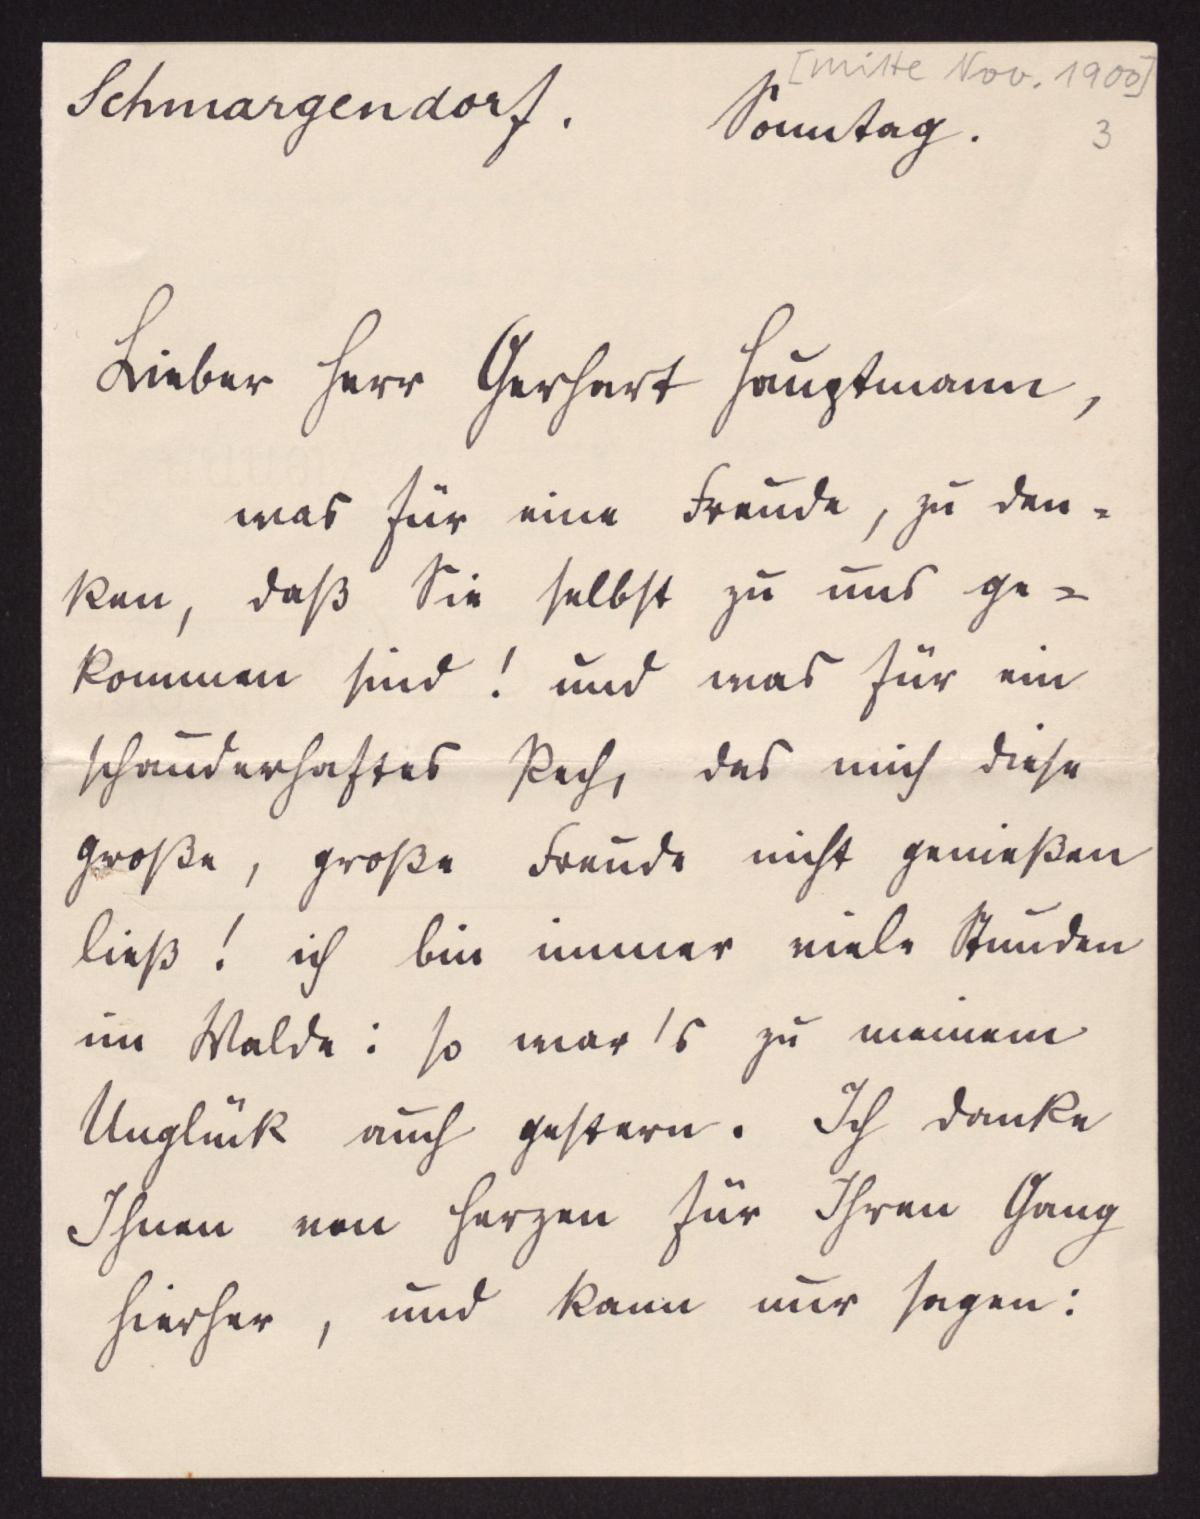 [Mitte Nov. 1900]
Schmargendorf. Sonntag. 3
Lieber Herr Gerhart Hauptmann,
was für eine Freude, zu den-
ken, daß Sie selbst zu uns ge-
kommen sind! und was für ein
schauderhaftes Pech, das mich diese
große, große Freude nicht genießen
ließ! ich bin immer viele Stunden
im Walde: so war's zu meinem
Unglück auch gestern. Ich danke
Ihnen von Herzen für Ihren Gang
hierher, und kann nur sagen: